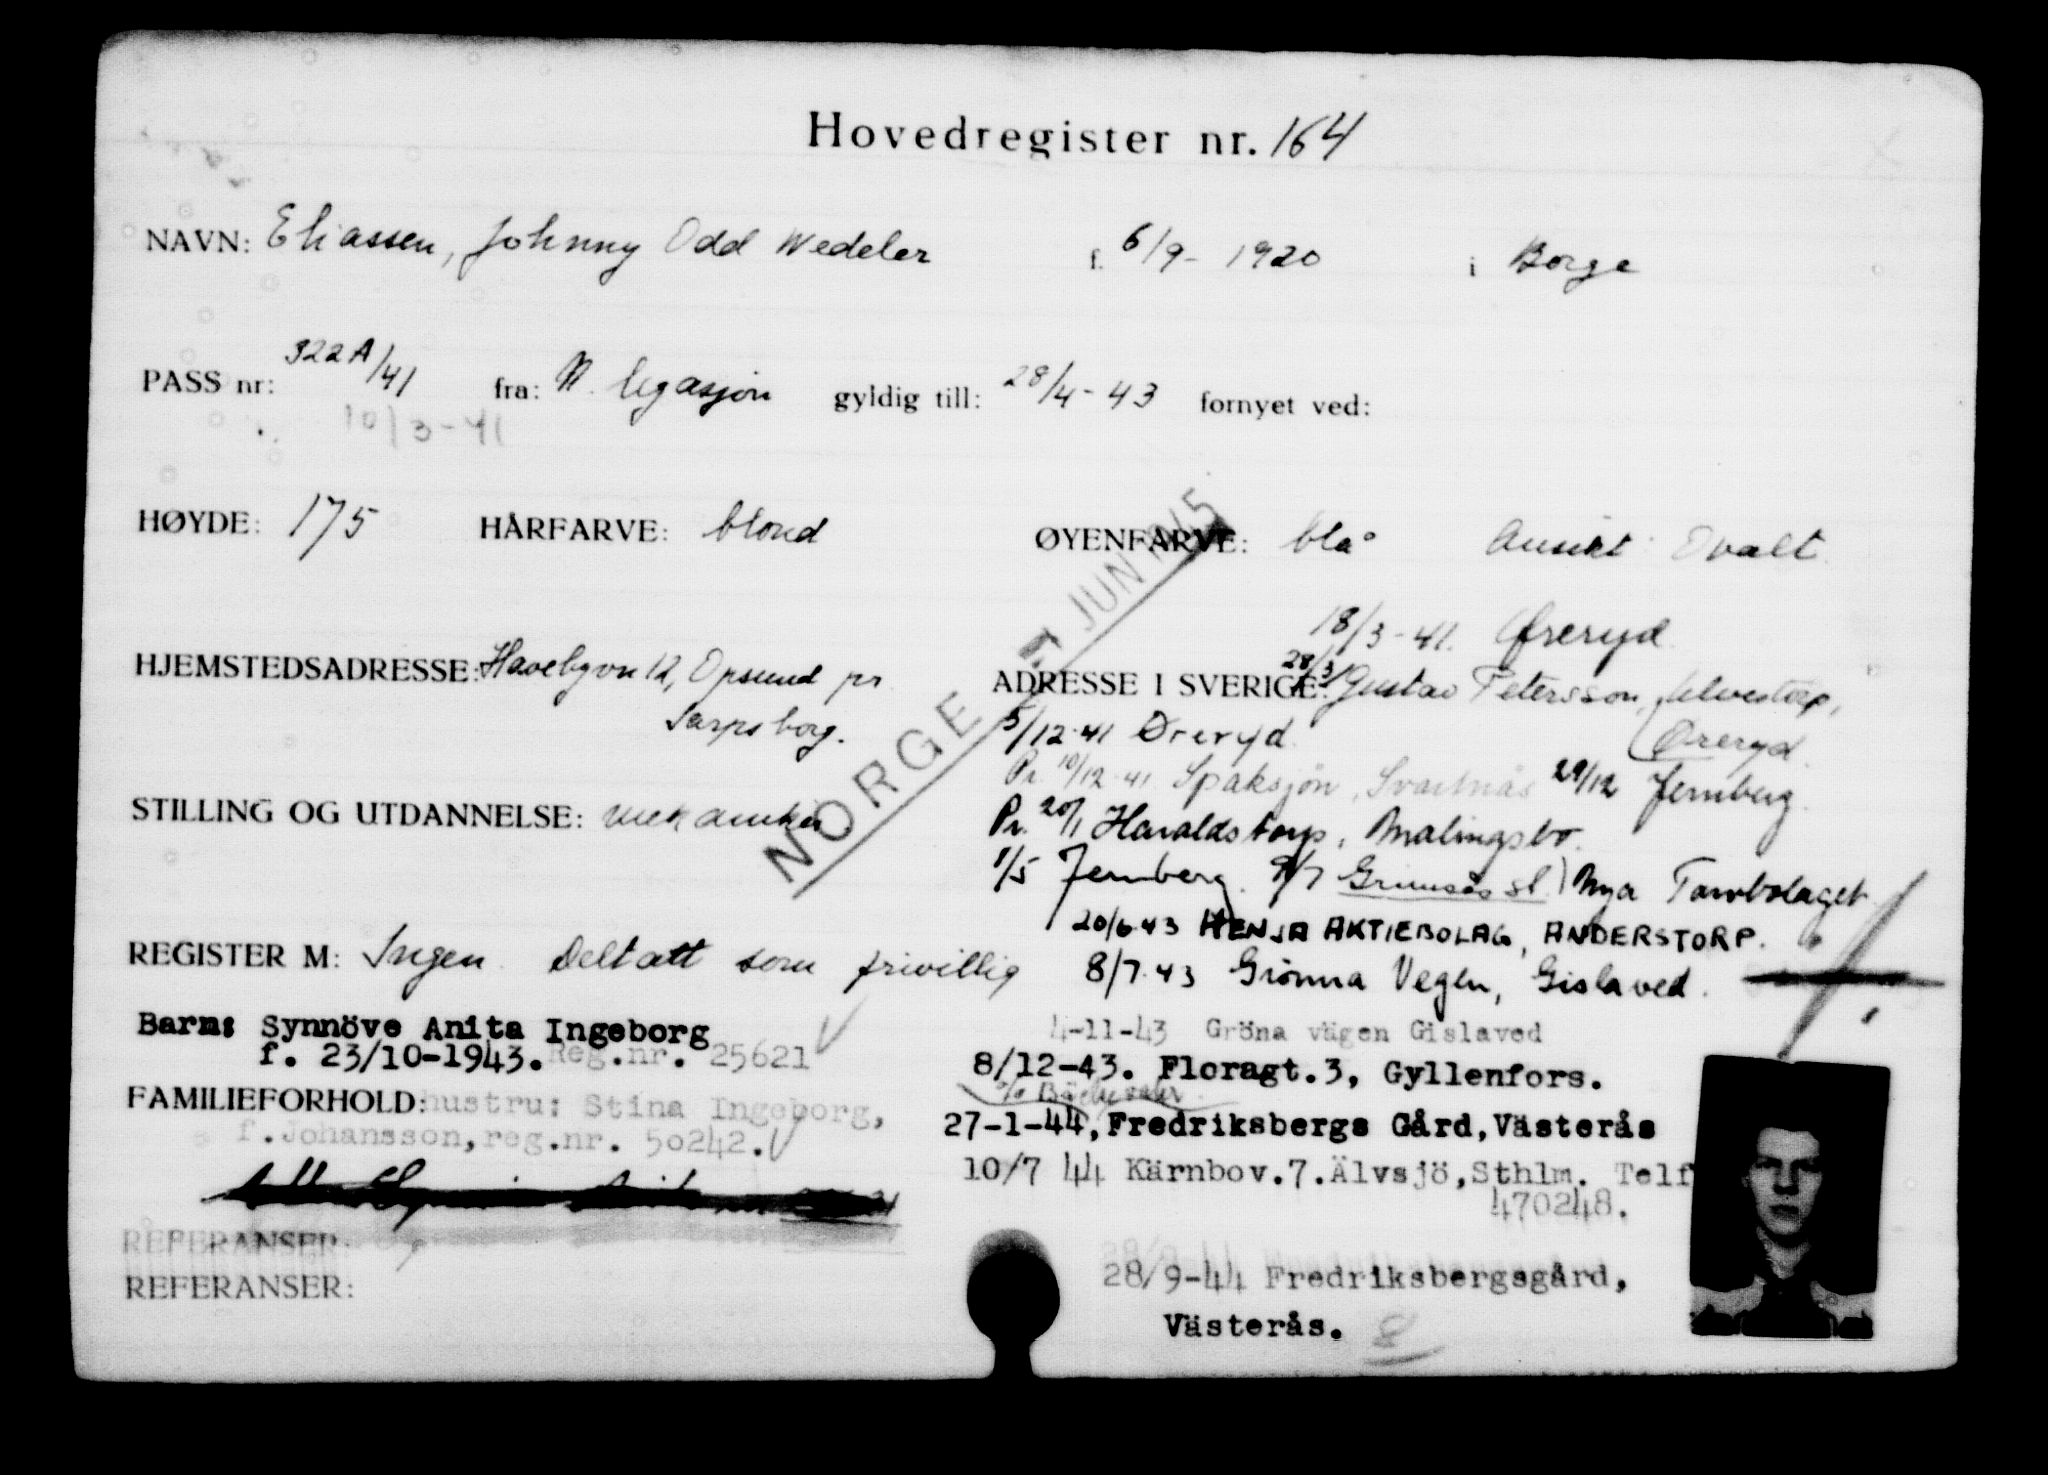 Hovedregister nr. 164
NAVN: Eliassen, Johnny Odd Wedeler f. 6/9-1920 i Borge
PASS nr: 322A/41 fra: N. legasjon gyldig till: 28/4-43 fornyet ved:
10/3-41
HØYDE: 175 HÅRFARVE: blond ØYENFARVE: blå Ansikt: Ovalt.
NORGE 7 JUN 1945
HJEMSTEDSADRESSE: Havebyvn 12, Opsund pr
Sarpsborg.
STILLING OG UTDANNELSE: mekaniker
REGISTER M: Ingen. Deltatt som frivillig
Barn: Synnöve Anita Ingeborg
f. 23/10-1943. Reg.nr. 25621
FAMILIEFORHOLD: hustru: Stina Ingeborg,
f. Johansson, reg.nr. 50242.
REFERANSER:
REFERANSER:
18/3-41. Øreryd.
ADRESSE I SVERIGE: 28/3 Gustav Petersson,
Øreryd.
5/12-41 Øreryd.
Pr. 10/12-41 Spaksjön, Svartnäs 29/12 Jernberg.
Pr. 20/1 Haraldstorp, Malingsbo.
1/5 Jernberg. 9/7 Grimsås st. Nya Torvbolaget
20/6-43 HENJA AKTIEBOLAG, ANDERSTORP.
8/7-43 Grönna Vegen, Gislaved.
4-11-43 Gröna vägen Gislaved
8/12-43. Floragt.3, Gyllenfors.
27-1-44, Fredriksbergs Gård, Västerås
10/7 44 Kärnbov.7. Älvsjö, Sthlm. Telf
470248.
28/9-44 Fredriksbergsgård,
Västerås.
8